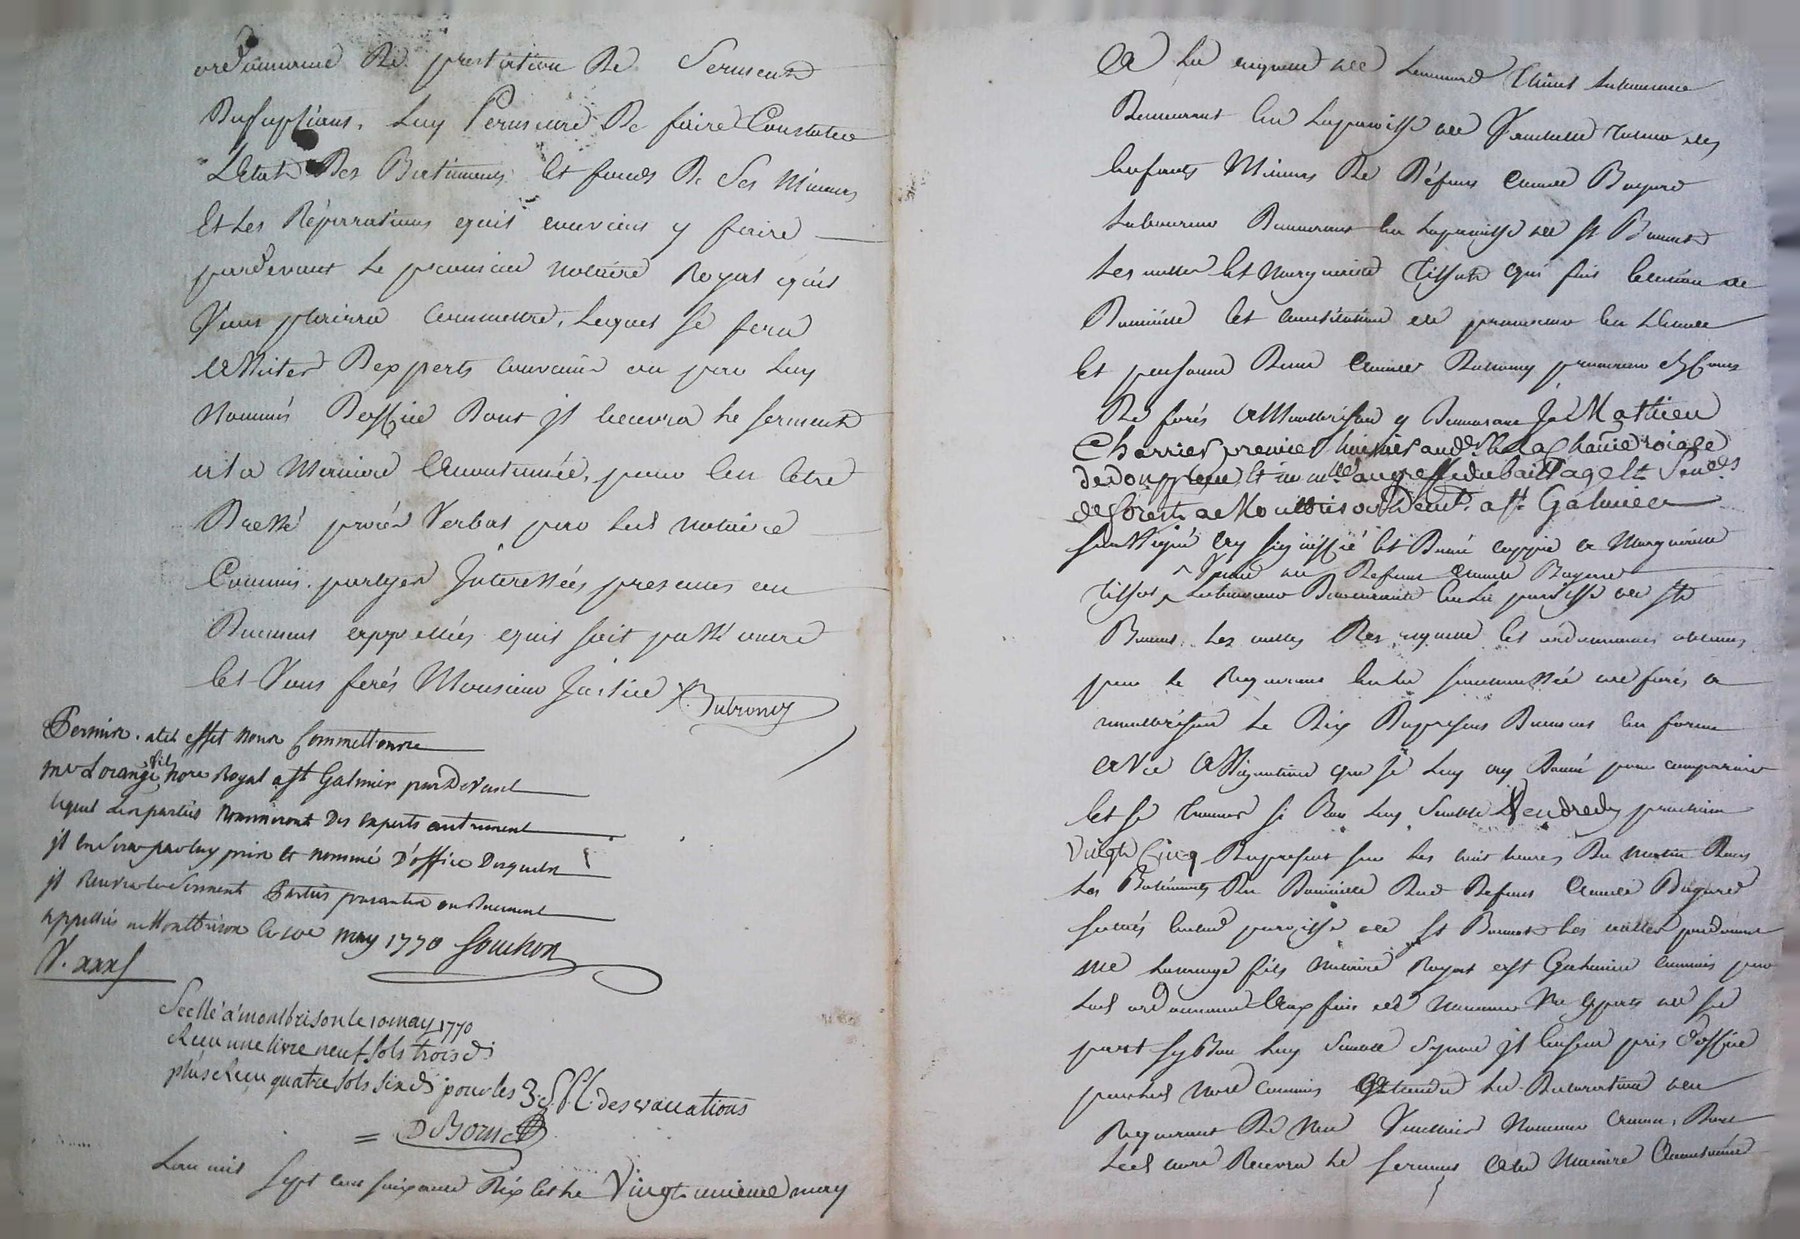 ordonnance De prestation De Serment
Dusupliant, Luy Permettre De faire Constater
L'Etat Des Batiments Et fonds De Ses Mineurs
Et Les Réparations qu'il convient y faire
pardevant Le premier notaire Royal qu'il
Vous plairra commettre, Lequel Se fera
assister D'expperts convenus ou par Luy
Nommés D'office Dont jl recevra Le serment
a la Maniere accoutumée, pour En Etre
Dressé procès Verbal par Led notaire
Commis, partyes Interessées presentes ou
Duement appellées, qu'il soit passé outre
Et Vous ferés Monsieur Justice Dubronoy
Permis. a tel effet nous Commettons
me Lorange fils nore Royal a St Galmier par Devant
lequel Les parties nommeront Des Experts autrement
jl En Sera par luy pris et nommé D'office Desquels
jl Recevra le Serment Parties presentes ou Duement
appellées a Montbrison le 10e may 1770 Souchon
V. xxx s
Scellé a montbrison le 10 may 1770
Reçu une livre neuf sols trois d
plus Reçu quatre sols six d pour les 3 s. p. l. des vacations
= DeBorne
L'an mil Sept cent soixante Dix Et Le Vingt unieme may
A La requete de Laboureur
Demeurant En La paroisse de tuteur des
Enfants Mineurs De Défunt Claude Bayard
Laboureur Demeurant En La paroisse de St Bonnet
Les oulles Et Marguerite Tissot qui fait Election de
Domicille Et constitution de procureur En L'Etude
Et personne Dume Claude Dubronoy procureur Es Cours
De forés a Montbrison y Demeurant Je Mathieu
Charries premier huissier aud. roiale
de Et au greffe du bailliage Et Senéd
de forest. a Montbrison Demt. a St Galmier
soussigné ay signiffié Et Donné coppie a Marguerite
Veuve de Defunt Claude Bayard
Tissot ^ Laboureur Demeurante En La paroisse de St
Bonnet Les oulles Des requete Et ordonnances obtenus
par Le Requerant En La senechaussée de forés a
montbrison Le Dix Dupresent Duement En forme
avec assignation que Je Luy ay Donné pour comparoir
Et se trouver si Bon Luy semble Vendredy prochain
Vingt Cinq Dupresent sur Les huit heures Du matin Dans
Les Batiments Du Domicille Dud Defunt Claude Bayard
situés En lad paroisse de St Bonnet Les oulles pardevant
me Lorange fils Notaire Royal a St Galmier commis par
Lad ordonnance Aux fins de Nommer Un Experts de sa
part sy Bon Luy semble Sinon jl En sera pris d'office
par Led nore commis attendu La Declaration du
Requerant De Ne Vouloir Nommer aucun, Dont
Led nore Recevra Le serment a la Maniere accoutumée